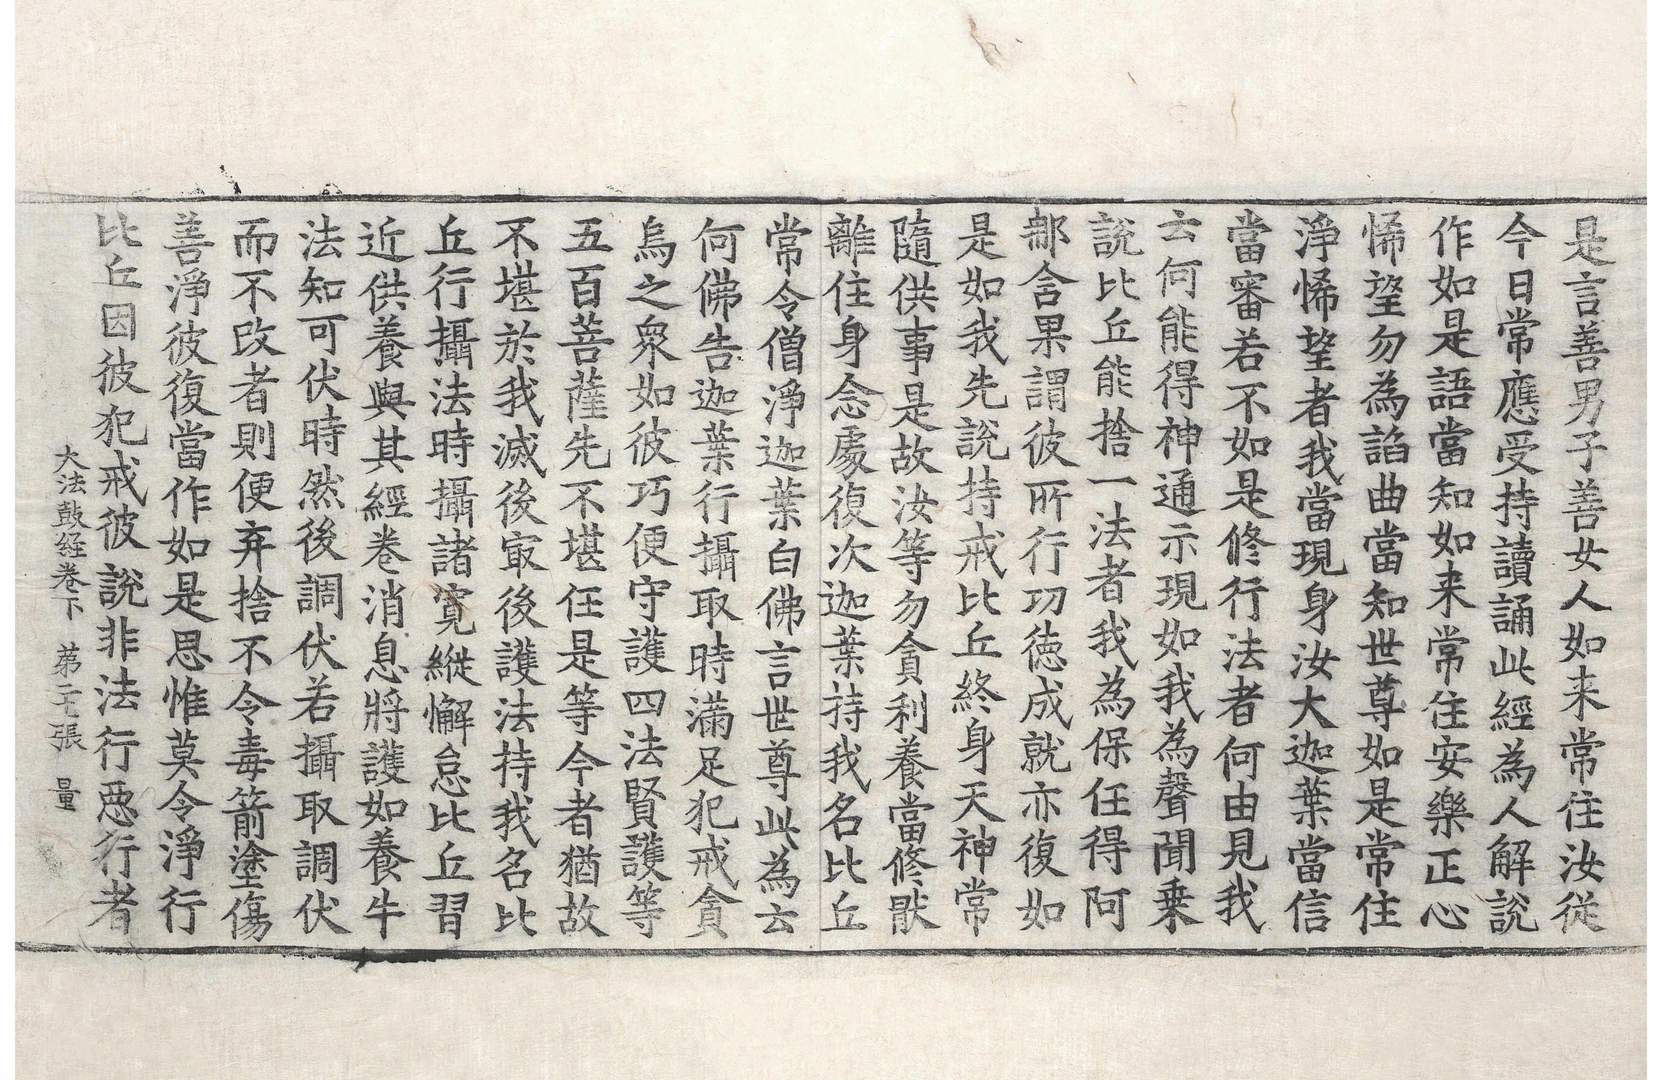 是言善男子善女人如来常住汝從
今日常應受持讀誦此經為人解說
作如是語當知如来常住安樂正心
悕望勿為諂曲當知世尊如是常住
淨悕望者我當現身汝大迦葉當信
當審若不如是修行法者何由見我
云何能得神通示現如我為聲聞乗
說比丘能捨一法者我為保任得阿
那含果謂彼所行功徳成就亦復如
是如我先說持戒比丘終身天神常
隨供事是故汝等勿貪利養當修猒
離住身念處復次迦葉持我名比丘
常令僧淨迦葉白佛言世尊此為云
何佛告迦葉行攝取時滿足犯戒貪
烏之衆如彼巧便守護四法賢護等
五百菩薩先不堪任是等今者猶故
不堪於我滅後㝡後護法持我名比
丘行攝法時攝諸寬縱懈怠比丘習
近供養與其經卷消息將護如養牛
法知可伏時然後調伏若攝取調伏
而不改者則便弃捨不令毒箭塗傷
善淨彼復當作如是思惟莫令淨行
比丘因彼犯戒彼說非法行惡行者
大法鼓経卷下 苐二十張 量